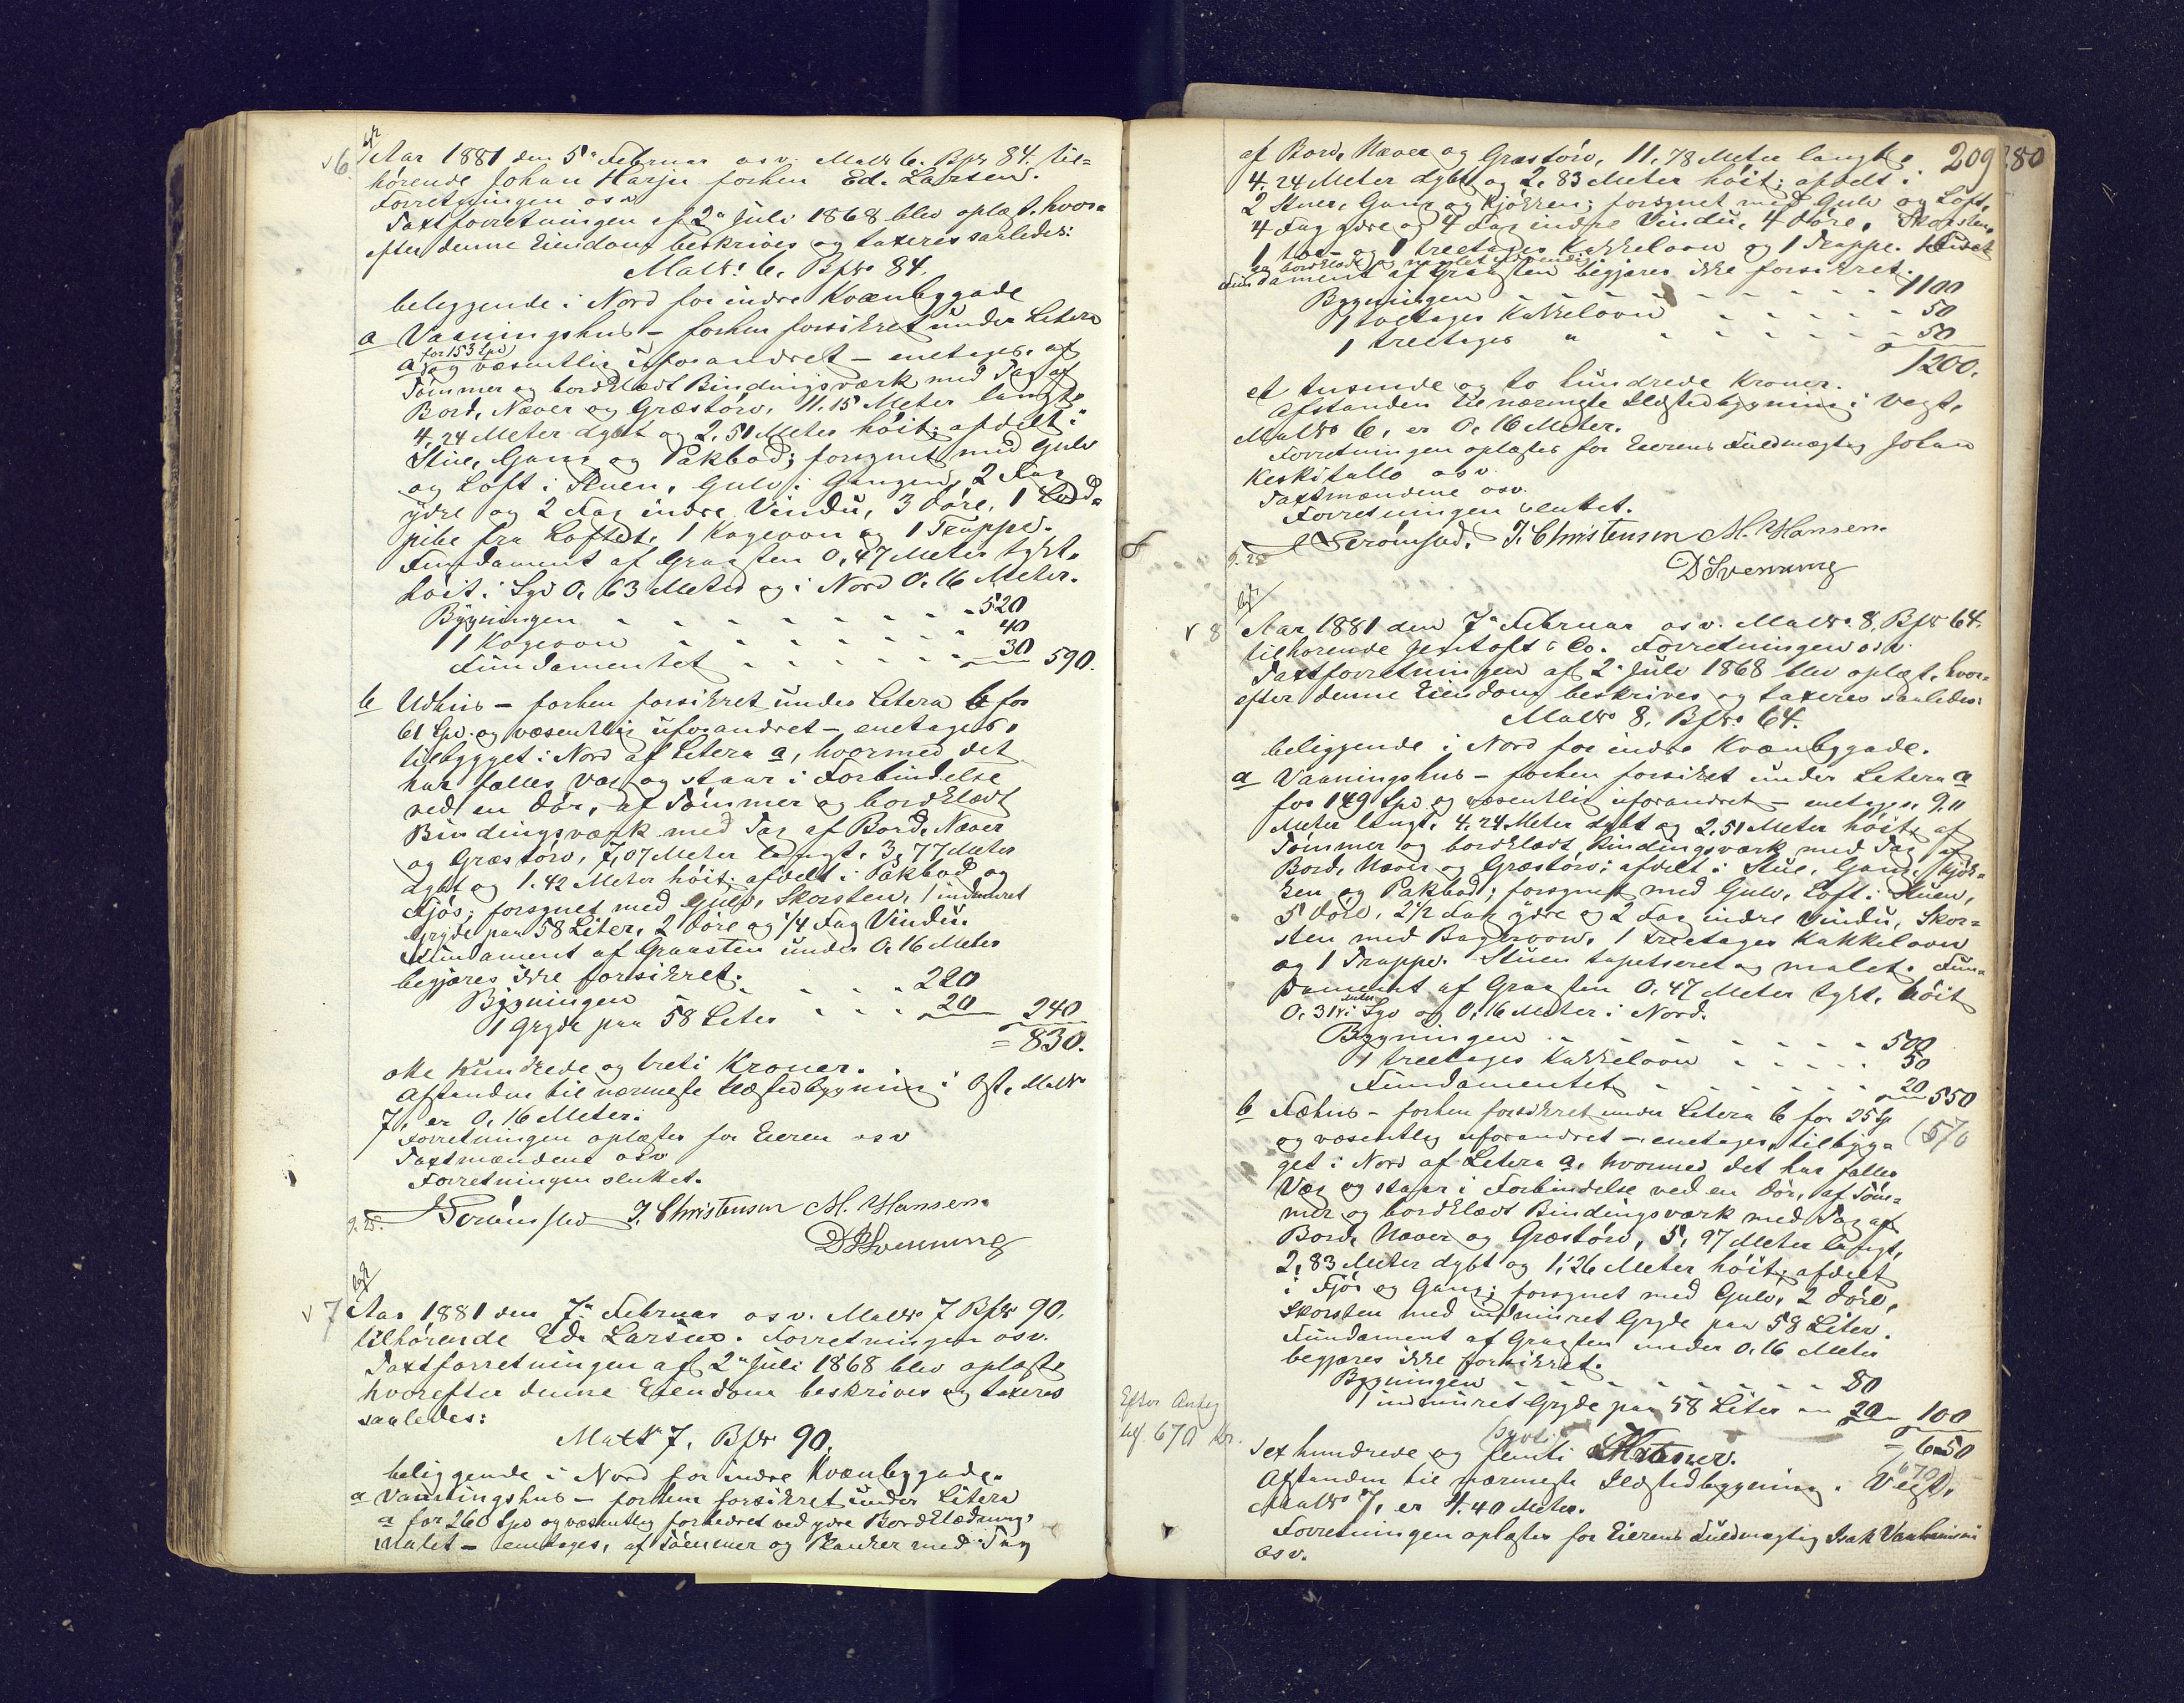 v 6. Aar 1881 den 5te Februar osv. Matr 6. Bfr 84. til=
hørende Johan Harju forhen Ed. Larsen.
Forretningen osv
Taxtforretningen af 2n Juli 1868 blev oplæst, hvor=
efter denne Eiendom beskrives og taxeres saaledes:
Matr: 6. Bfr. 84.
beliggende i Nord for indre Kvænbygade
a Vaaningshus - forhen forsikret under Litera
a for 153 Spd og væsentlig uforandret - enetages, af
Tømmer og bordklædt Bindingsværk med Tag af
Bord, Næver og Græstørv, 11.15 Meter langt,
4,24 Meter dybt og 2,51 Meter høit; afdelt i
Stue, Gang og Pakbod; forsynet med Gulv
og Loft i Stuen, Gulv i Gangen, 2 Fag
ydre og 2 Fag indre Vindu, 3 Døre, 1
pibe fra Loftet, 1 Kogeovn og 1 Trappe.
Fundament af Graasten 0,47 Meter tykt,
høit i Syd 0,63 Meter og i Nord 0,16 Meter.
Bygningen - - - - - - - 520
1 Kogeovn - - - - - - - 40
Fundamentet - - - - - - 30 590.
b Udhus - forhen forsikret under Litera b for
61 Spd. og væsentlig uforandret - enetages,
tilbygget i Nord af Litera a, hvormed det
har fælles Væg og staar i Forbindelse
ved en Dør, af Tømmer og bordklædt
Bindingsværk med Tag af Bord, Næver
og Græstørv, 7,07 Meter langt, 3,77 Meter
dybt og 1.42 Meter høit; afdelt i Pakbod og
Fjøs; forsynet med Gulv, Skorsten, 1 indmuret
Gryde paa 58 Liter, 2 Døre og 1/4 Fag Vindu.
Fundament af Graasten under 0,16 Meter
begjæres ikke forsikret.
Bygningen - - - - - 220
1 Gryde paa 58 Liter - - - 20 240
= 830.
otte hundrede og treti Kroner.
Afstanden til nærmeste Ildstedbygning i Øst, Matr
7, er 0,16 Meter.
Forretningen oplæstes for Eieren osv
Taxtmændene osv
Forretningen sluttet.
Strømsted J. Christensen M. Hansen.
D Svenning
v 7 Aar 1881 den 7n Februar osv. Matr 7 Bfr 90.
tilhørende Ed. Larsen. Forretningen osv.
Taxtforretningen af 2n Juli 1868 blev oplæst,
hvorefter denne Eiendom beskrives og taxeres
saaledes:
Matr 7. Bfr 90.
beliggende i Nord for indre Kvænbygade.
a Vaaningshus - forhen forsikret under Litera
a for 260 Spd og væsentlig forbedret ved ydre Bordklædning,
malet - enetages, af Tømmer og Planker med Tag
209 280
af Bord, Næver og Græstørv, 11,78 Meter langt,
4,24 Meter dybt og 2,83 Meter høit; afdelt i
2 Stuer, Gang og Kjøkken; forsynet med Gulv og Loft,
4 Fag ydre og 4 Fag indre Vindu, 4 Døre, Skorsten,
1 toe- og 1 treetages Kakkelovn og 1 Trappe. Huset
er bordklædt og malet udvendig
Fundament af Graasten begjæres ikke forsikret.
Bygningen - - - - - - - 1100
1 toetages Kakkelovn - - - - - 50
1 treetages " - - - - - 50
1200.
et tusende og to hundrede Kroner.
Afstanden til nærmeste Ildstedbygning i Vest,
Matr 6, er 0,16 Meter.
Forretningen oplæstes for Eierens Fuldmægtig Johan
Keskitallo osv.
Taxtmændene osv.
Forretningen sluttet.
Strømsted. J. Christensen M. Hansen.
D Svenning
v 8 Aar 1881 den 7n Februar osv. Matr. 8. Bfr 64.
tilhørende Jentoft & Co. Forretningen osv.
Taxtforretningen af 2n Juli 1868 blev oplæst, hvor=
efter denne Eiendom beskrives og taxeres saaledes:
Matr. 8. Bfr. 64.
beliggende i Nord for indre Kvænbygade.
a Vaaningshus - forhen forsikret under Litera a
for 149 Spd og væsentlig uforandret - enetages, 9,11
Meter langt, 4,24 Meter dybt og 2,51 Meter høit, af
Tømmer og bordklædt Bindingsværk med Tag af
Bord, Næver og Græstørv; afdelt i Stue, Gang, Kjøk=
ken og Pakbod; forsynet med Gulv, Loft i Stuen,
5 Døre, 2 1/2 Fag ydre og 2 Fag indre Vindu, Skor=
sten med Bagerovn, 1 treetages Kakkelovn
og 1 Trappe. Stuen tapetseret og malet. Fun=
dament af Graasten 0,47 Meter tykt, høit
0,31 Meter i Syd og 0,16 Meter i Nord.
Bygningen - - - - - - - 500
1 treetages Kakkelovn - - - - 50
Fundamentet - - - - - - 20 550
(570
b Fæhus - forhen forsikret under Litera b for 25 Sp
og væsentlig uforandret - enetages, tilbyg=
get i Nord af Litera a, hvormed det har fælles
Væg og staar i Forbindelse ved en Dør, af Tøm=
mer og bordklædt Bindingsværk med Tag af
Bord, Næver og Græstørv, 5,97 Meter langt,
2,83 Meter dybt og 1,26 Meter høit; afdelt
i Fjøs og Gang; forsynet med Gulv, 2 Døre,
Skorsten med indmuret Gryde paa 58 Liter.
Fundament af Graasten under 0,16 Meter
begjæres ikke forsikret.
Bygningen - - - - - - - 80
1 indmuret Gryde paa 58 Liter - 20 100
= 650
(670)
(sytti
sex hundrede og femti Kroner.
Efter
670 Kr.
Afstanden til nærmeste Ildstedbygning i Vest,
Matr 7, er 4.40 Meter.
Forretningen oplæstes for Eierens Fuldmægtig Isak
osv.